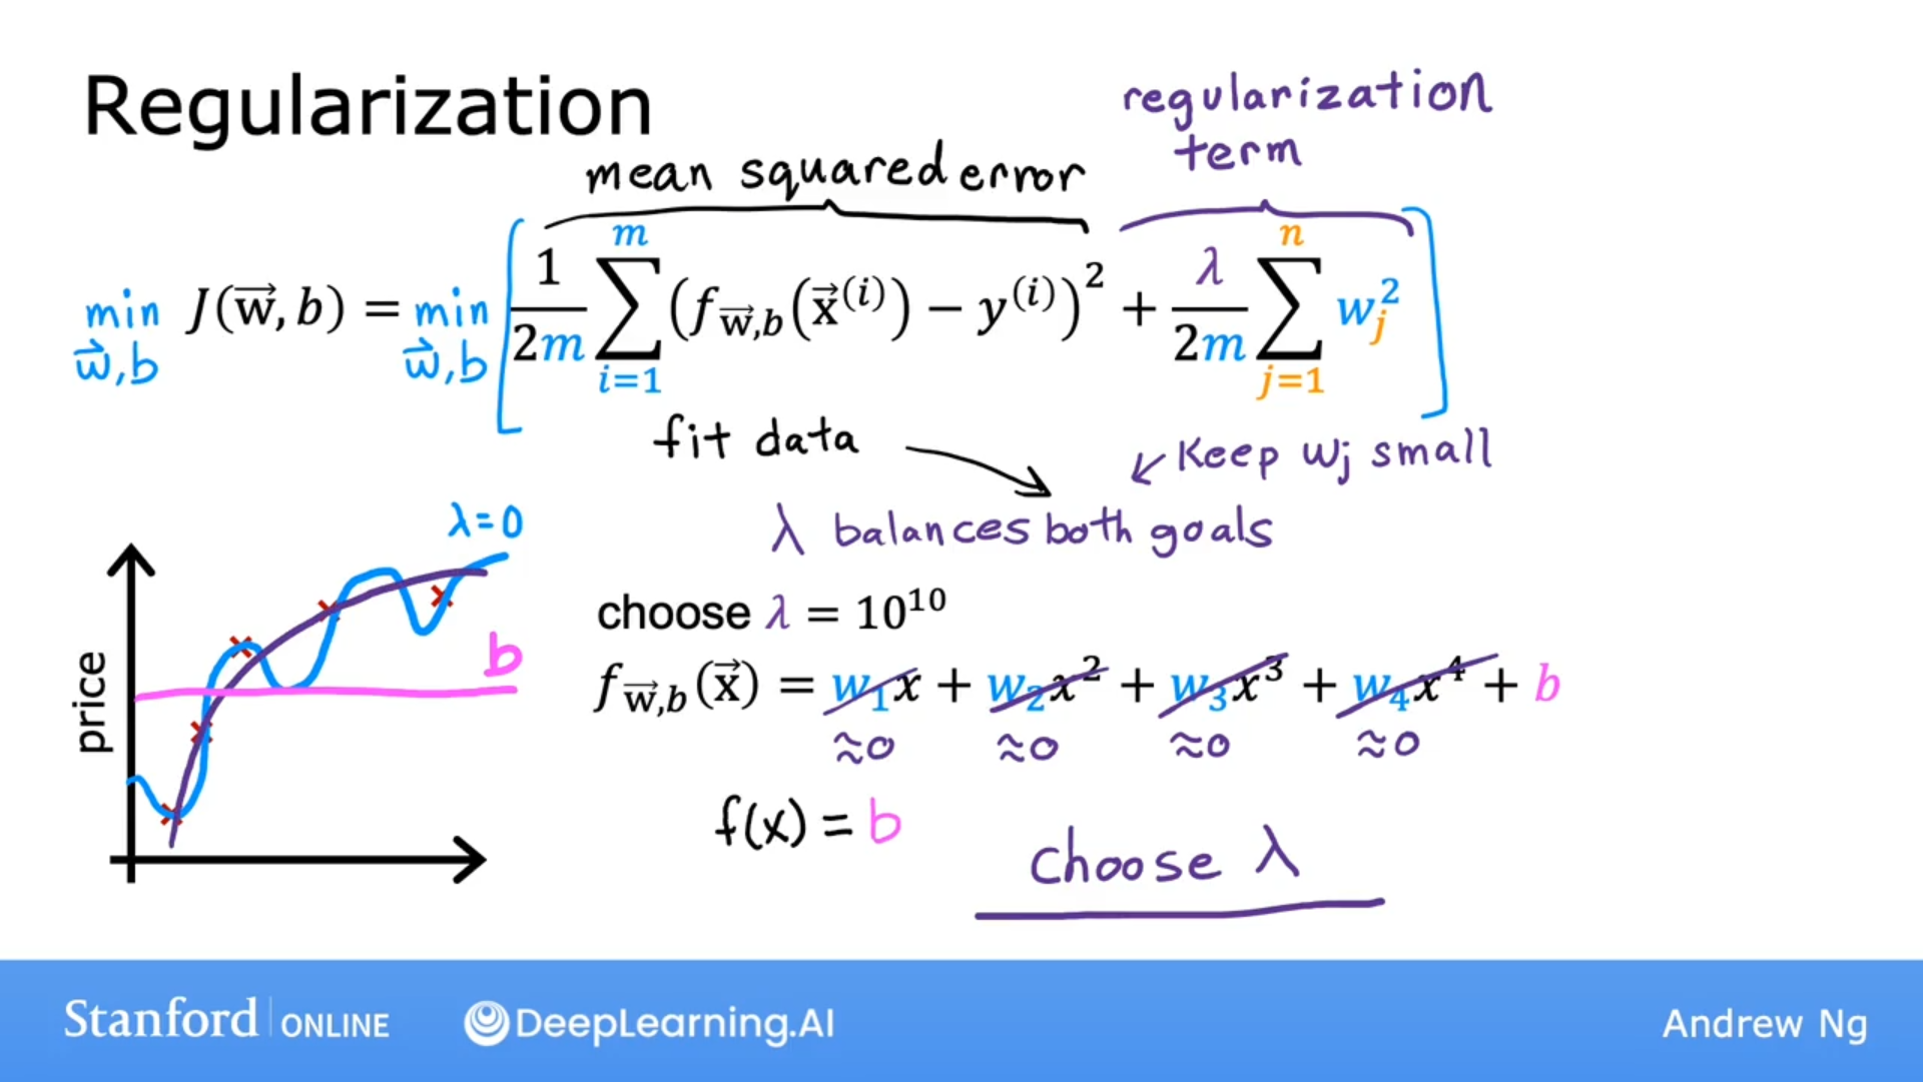 Regularization
regularization
term
mean squared error
min w⃗,b J(w⃗, b) = min w⃗,b [ 1/2m ∑ i=1 m (f w⃗,b(x⃗⁽ⁱ⁾) − y⁽ⁱ⁾)² + λ/2m ∑ j=1 n wⱼ² ]
fit data
Keep wj small
λ balances both goals
λ=0
choose λ = 10¹⁰
b
price
f w⃗,b(x⃗) = w₁x + w₂x² + w₃x³ + w₄x⁴ + b
≈0 ≈0 ≈0 ≈0
f(x) = b
choose λ
Stanford ONLINE DeepLearning.AI Andrew Ng